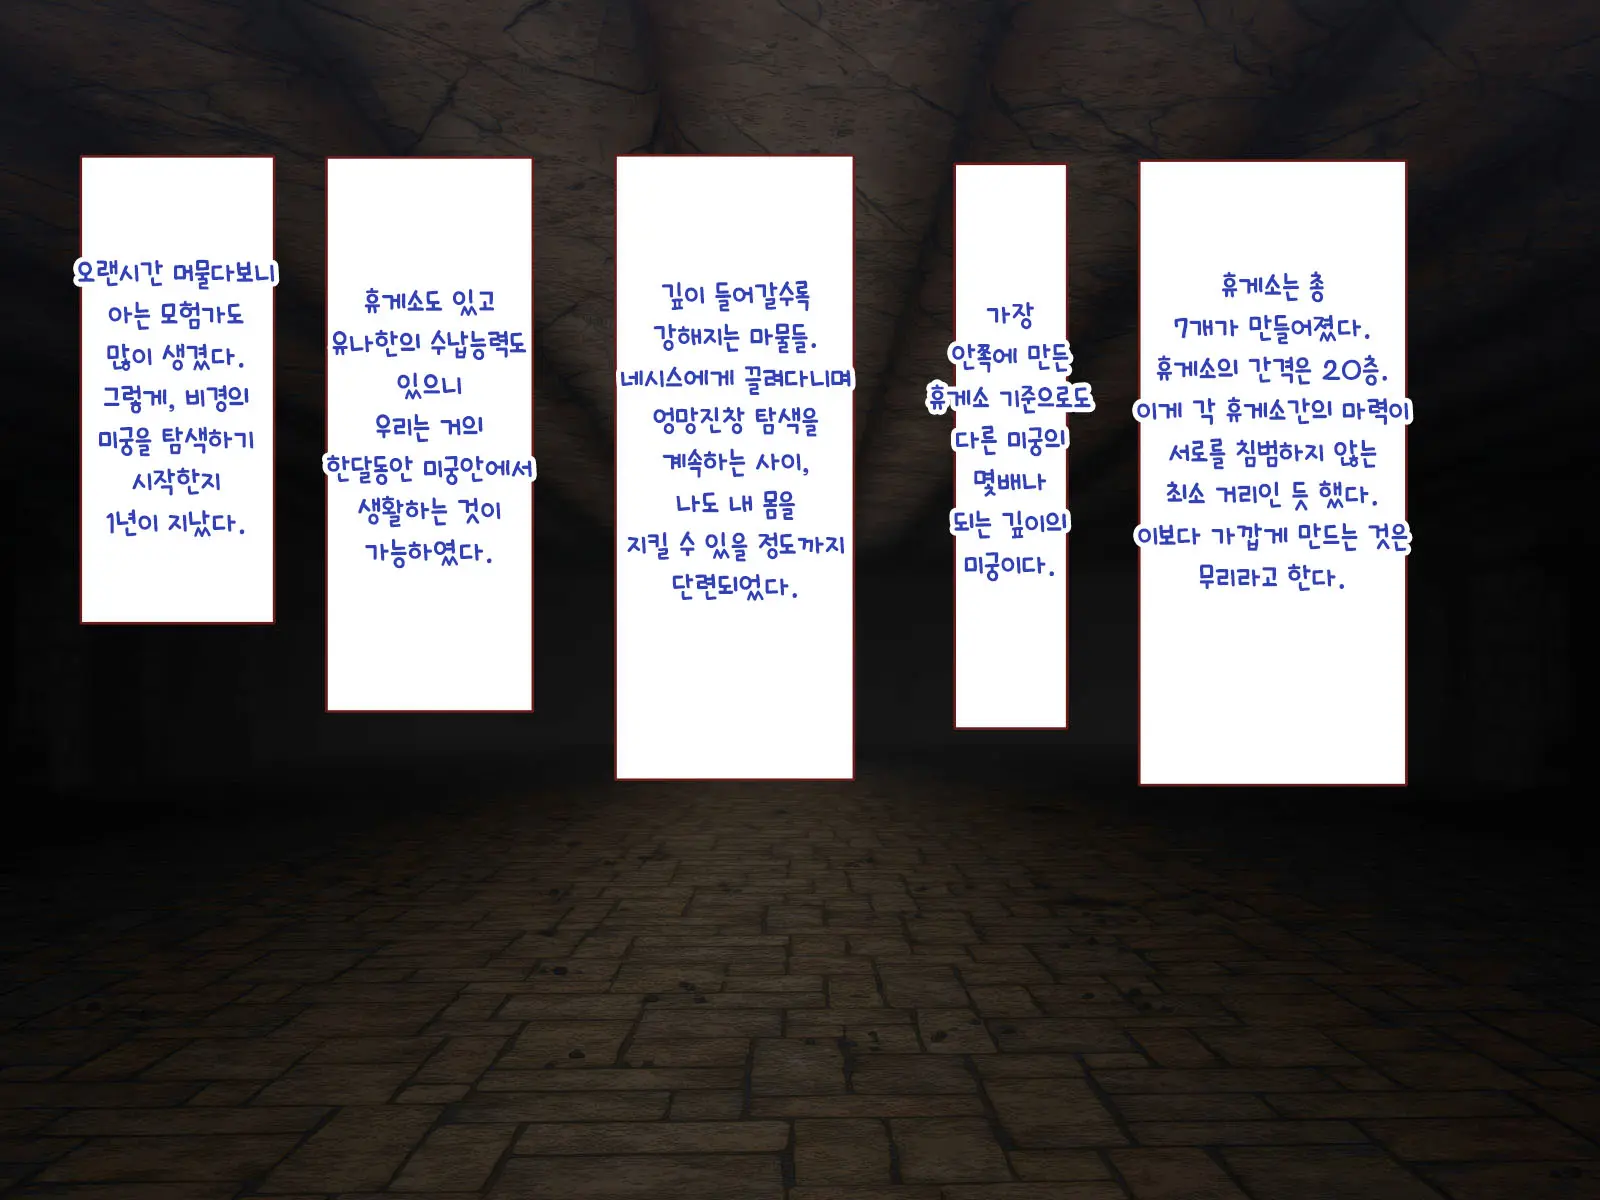 휴게소는 총
7개가 만들어졌다.
휴게소의 간격은 20층.
이게 각 휴게소간의 마력이
서로를 침범하지 않는
최소 거리인 듯 했다.
이보다 가깝게 만드는 것은
무리라고 한다.
가장
안쪽에 만든
휴게소 기준으로도
다른 미궁의
몇배나
되는 깊이의
미궁이다.
깊이 들어갈수록
강해지는 마물들.
네시스에게 끌려다니며
엉망진창 탐색을
계속하는 사이,
나도 내 몸을
지킬 수 있을 정도까지
단련되었다.
휴게소도 있고
유나한의 수납능력도
있으니
우리는 거의
한달동안 미궁안에서
생활하는 것이
가능하였다.
오랜시간 머물다보니
아는 모험가도
많이 생겼다.
그렇게, 비경의
미궁을 탐색하기
시작한지
1년이 지났다.